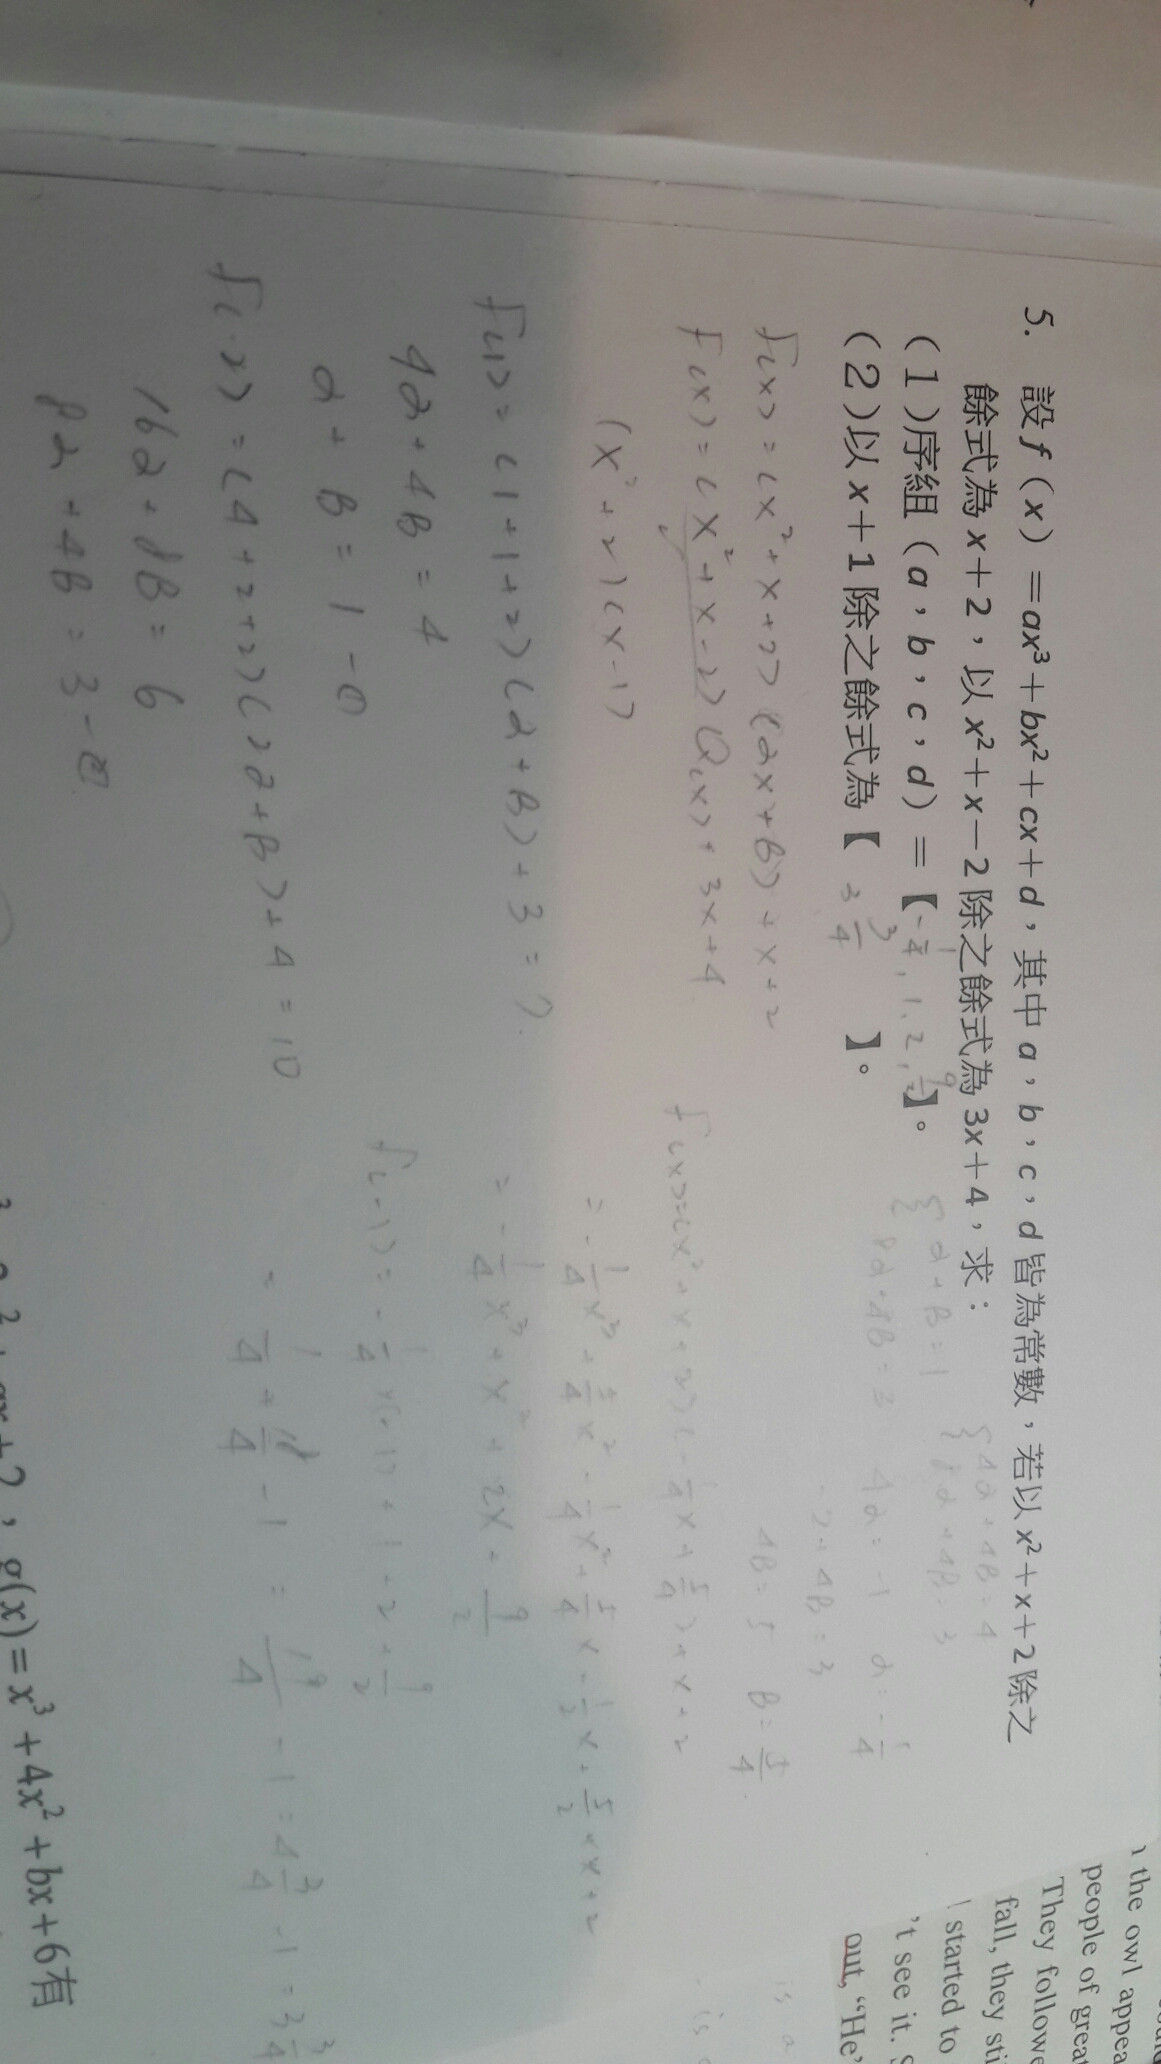 5. 設 f(x)=ax³+bx²+cx+d，其中 a，b，c，d 皆為常數，若以 x²+x+2 除之
餘式為 x+2，以 x²+x-2 除之餘式為 3x+4，求：
(1)序組(a，b，c，d)=【-1/4, 1, 2, 9/2】。
(2)以 x+1 除之餘式為【 3 3/4 】。
f(x)=(x²+x+2)(2x+B)+x+2
f(x)=(x²+x-2)Q(x)+3x+4
(x²+2)(x-1)
f(1)=(1+1+2)(2+B)+3=7
42+4B=4
2+B=1-①
f(-2)=(4+2+2)(22+B)+4=10
162+8B=6
82+4B=3-②
{2+B=1
82+4B=3
{42+4B=4
82+4B=3
42=-1
-2+4B=3
4B=5 B=5/4
f(x)=(x²+x+2)(-1/4x+5/4)+x+2
=-1/4x³+5/4x²-1/4x²+5/4x-1/2x+5/2+x+2
=-1/4x³+x²+2x+9/2
= 1/4+18/4-1=19/4-1=4 3/4-1=3 3/4
g(x)=x³+4x²+bx+6有
the owl appea
people of grea
They followe
fall, they sti
started to
't see it.
out, "He'